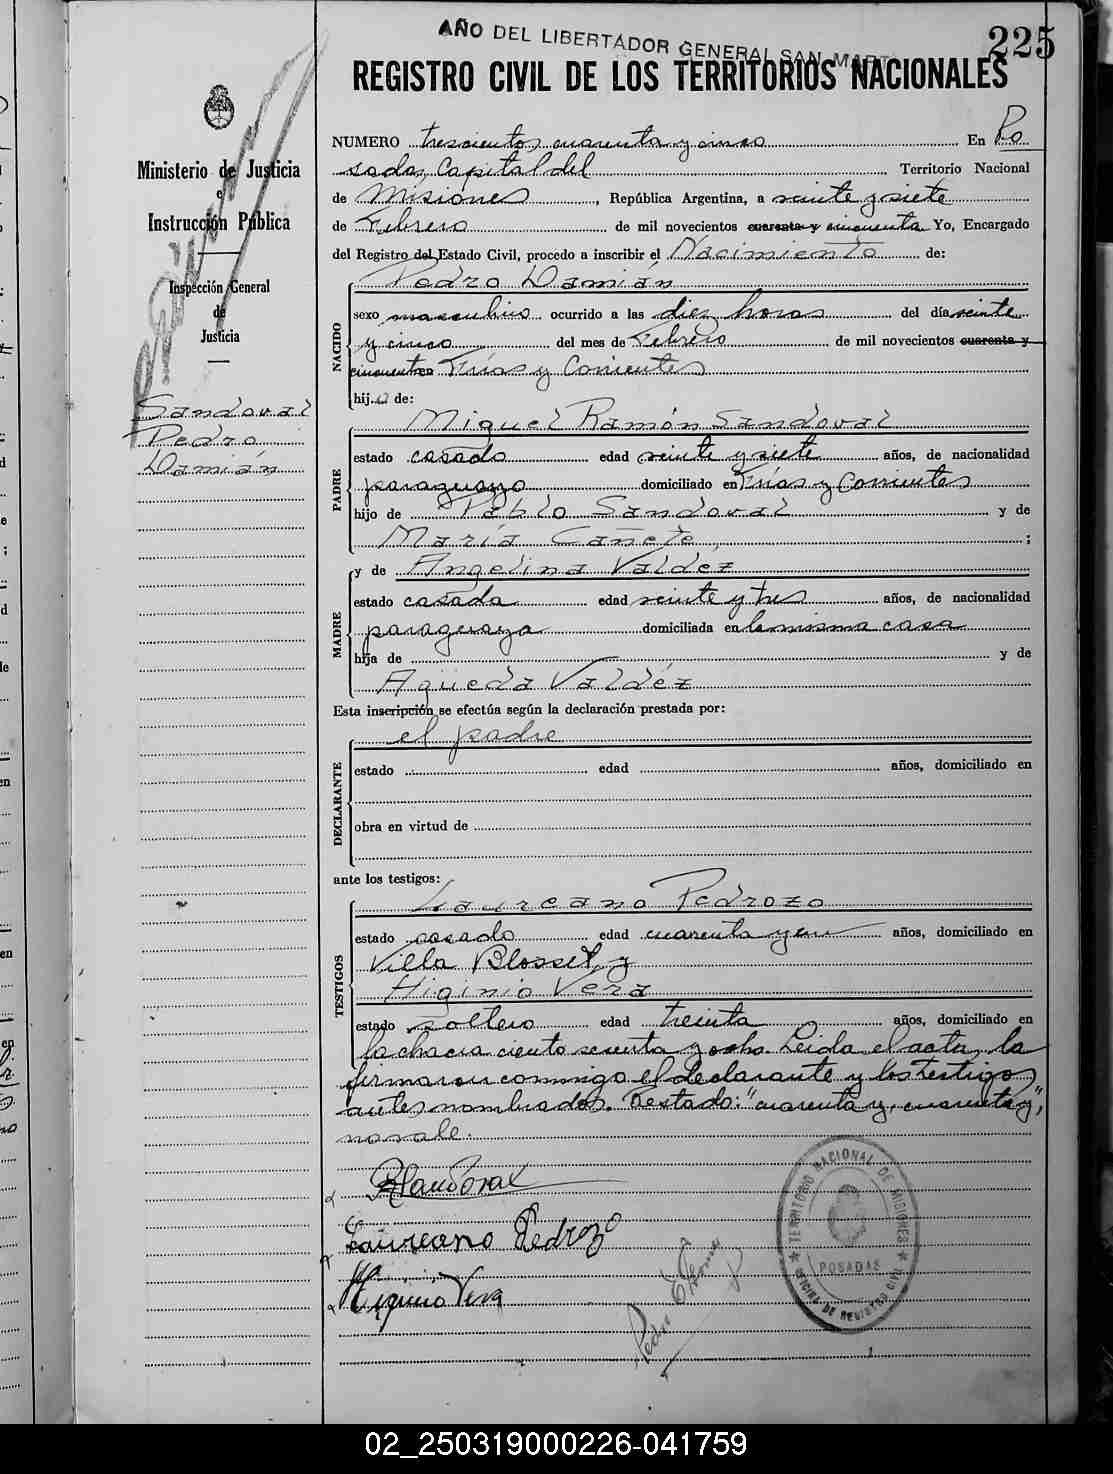 AÑO DEL LIBERTADOR GENERAL SAN MARTI
225
REGISTRO CIVIL DE LOS TERRITORIOS NACIONALES
Ministerio de Justicia
e
Instrucción Pública
Inspección General
de
Justicia
Sandoval
Pedro
Damián
NUMERO trescientos cuarenta y cinco En Po
sadas, Capital del Territorio Nacional
de Misiones, República Argentina, a veinte y siete
de Febrero de mil novecientos cuarenta y cincuenta Yo, Encargado
del Registro del Estado Civil, procedo a inscribir el Nacimiento de:
NACIDO
Pedro Damián
sexo masculino ocurrido a las diez horas del día veinte
y cinco del mes de Febrero de mil novecientos cuarenta y
cincuenta en Frías y Corrientes
hij o de:
PADRE
Miguel Ramón Sandoval
estado casado edad veinte y siete años, de nacionalidad
paraguayo domiciliado en Frías y Corrientes
hijo de Pablo Sandoval y de
María Cañete ;
MADRE
y de Angelina Valdéz
estado casada edad veinte y tres años, de nacionalidad
paraguaya domiciliada en la misma casa
hija de y de
Agueda Valdéz
Esta inscripción se efectúa según la declaración prestada por:
DECLARANTE
el padre
estado edad años, domiciliado en
obra en virtud de
ante los testigos:
TESTIGOS
Laureano Pedrozo
estado casado edad cuarenta y un años, domiciliado en
Villa Blosset, y
Higinio Vera
estado soltero edad treinta años, domiciliado en
la chacra ciento setenta y ocho. Leida el acta, la
firmaron conmigo el declarante y los testigos
antes nombrados. Testado: "cuarenta y, cuarenta y",
no vale.
Laureano Pedrozo
Higinio Vera
TERRITORIO NACIONAL DE MISIONES
POSADAS
OFICINA DE REGISTRO CIVIL
02_250319000226-041759